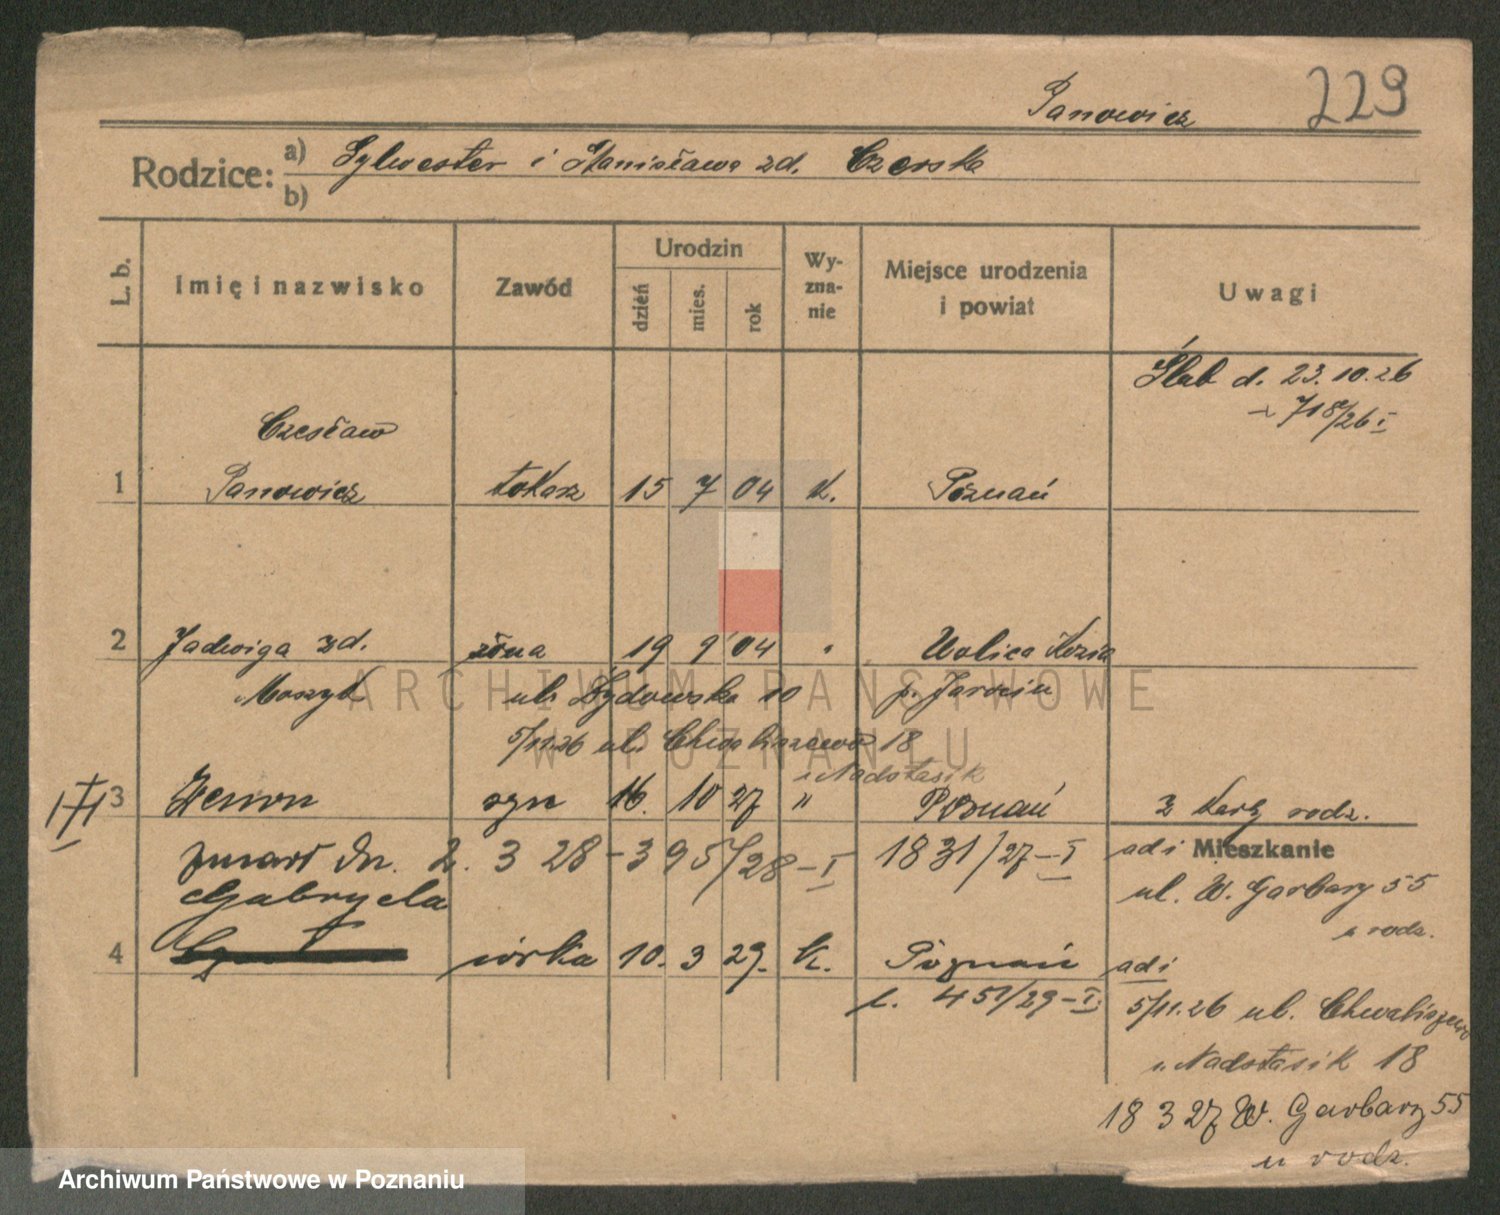 Panowicz 229
Rodzice: a) Sylwester i Stanisława zd. Czerska
b)
L. b. Imię i nazwisko Zawód Urodzin dzień mies. rok Wy-zna-nie Miejsce urodzenia i powiat Uwagi
Ślub d. 23.10.26
718/26 I
Czesław
1 Panowicz tokarz 15 7 04 k. Poznań
2 Jadwiga zd. żona 19 9 04 " Wolica Kozia
Moszyk ul. Żydowska 10 p. Jarocin
5/11.26 ul. Chwaliszewo 18
u Nadstasik
III 3 Zenon syn 16. 10 27 " Poznań z karty rodz.
zmarł dn. 2. 3 28 – 395/28 – I 1831/27 – I adi Mieszkanie
Gabryela ul. W. Garbary 55
u rodz.
4 córka 10. 3 29. k. Poznań adi
l. 451/29 – I. 5/11.26 ul. Chwaliszewo
u Nadstasik 18
18 3 27 W. Garbary 55
u rodz.
ARCHIWUM PAŃSTWOWE
W POZNANIU
Archiwum Państwowe w Poznaniu